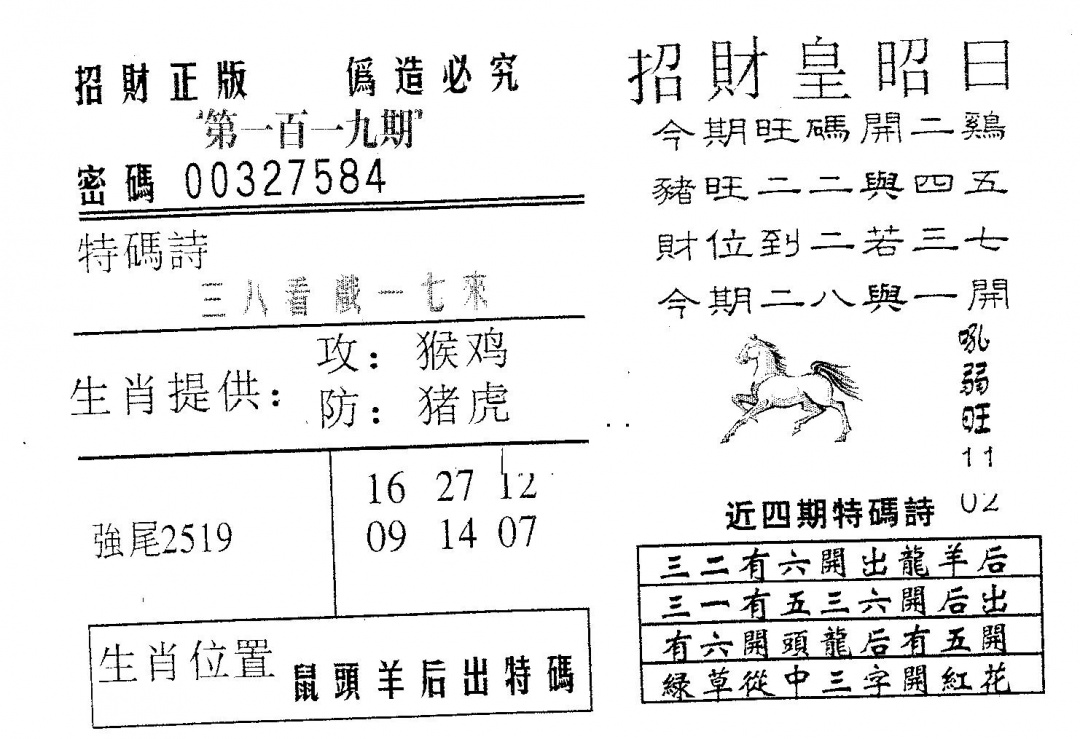 招財正版 僞造必究
"第一百一九期"
密碼 00327584
特碼詩
三八看戲一七來
生肖提供：
攻：猴鸡
防：猪虎
強尾2519
16 27 12
09 14 07
生肖位置 鼠頭羊后出特碼
招財皇昭日
今期旺碼開二鷄
豬旺二二與四五
財位到二若三七
今期二八與一開
吼弱旺
11
02
近四期特碼詩
三二有六開出龍羊后
三一有五三六開后出
有六開頭龍后有五開
緑草從中三字開紅花